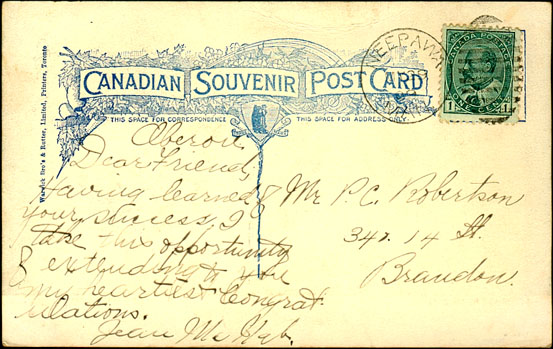 Warwick Bro's & Rutter, Limited, Printers, Toronto
CANADIAN SOUVENIR POST CARD
THIS SPACE FOR CORRESPONDENCE
THIS SPACE FOR ADDRESS ONLY
NEEPAWA
CANADA POSTAGE
1 1
Oberon
Dear Friend,
Having learned of
your success, I
take this opportunity
of extending to you
my heartiest Congrat
ulations.
Jean
Mr P.C. Robertson
342. 14 St.
Brandon.